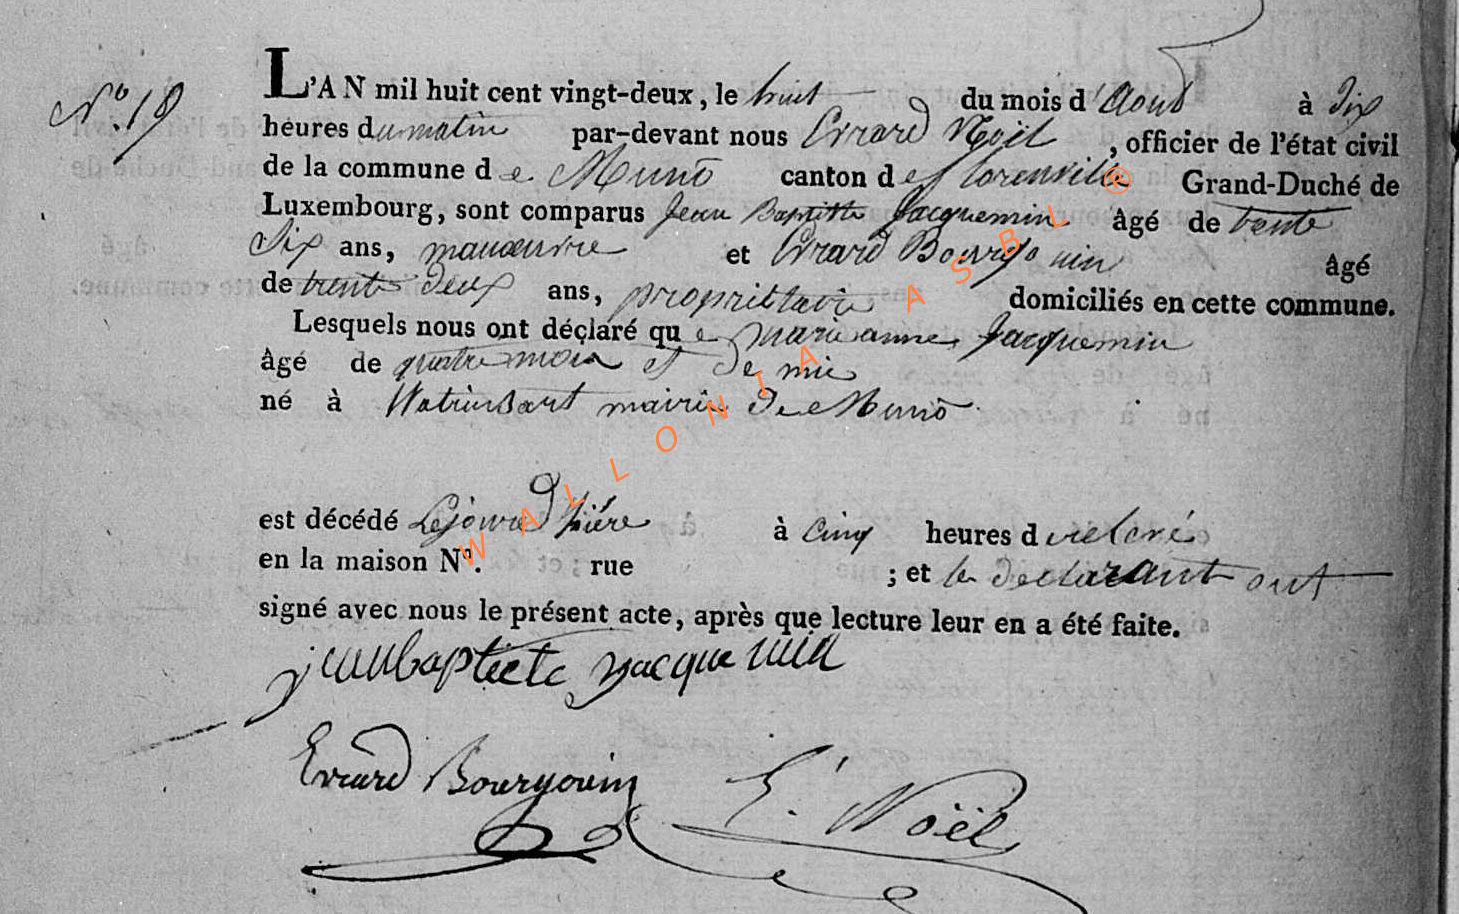 N.º 19
L'AN mil huit cent vingt-deux, le huit du mois d'Aout à dix
heures du matin par-devant nous Evrard Noël, officier de l'état civil
de la commune de Muno canton de florenville Grand-Duché de
Luxembourg, sont comparus Jean Baptiste Jacquemin âgé de trente
Six ans, manœuvre et Evrard Bourgouin âgé
de trente deux ans, propriétaire domiciliés en cette commune.
Lesquels nous ont déclaré que marie anne Jacquemin
âgé de quatre mois et demie
né à Watrinsart mairie de Muno
est décédé Le jour d'hiére à cinq heures de relevé
en la maison Nº. rue ; et les declarant ont
signé avec nous le présent acte, après que lecture leur en a été faite.
jean baptiste jacquemin
Evrard Bourgouin E. Noël
WALLONIA ASBL ®